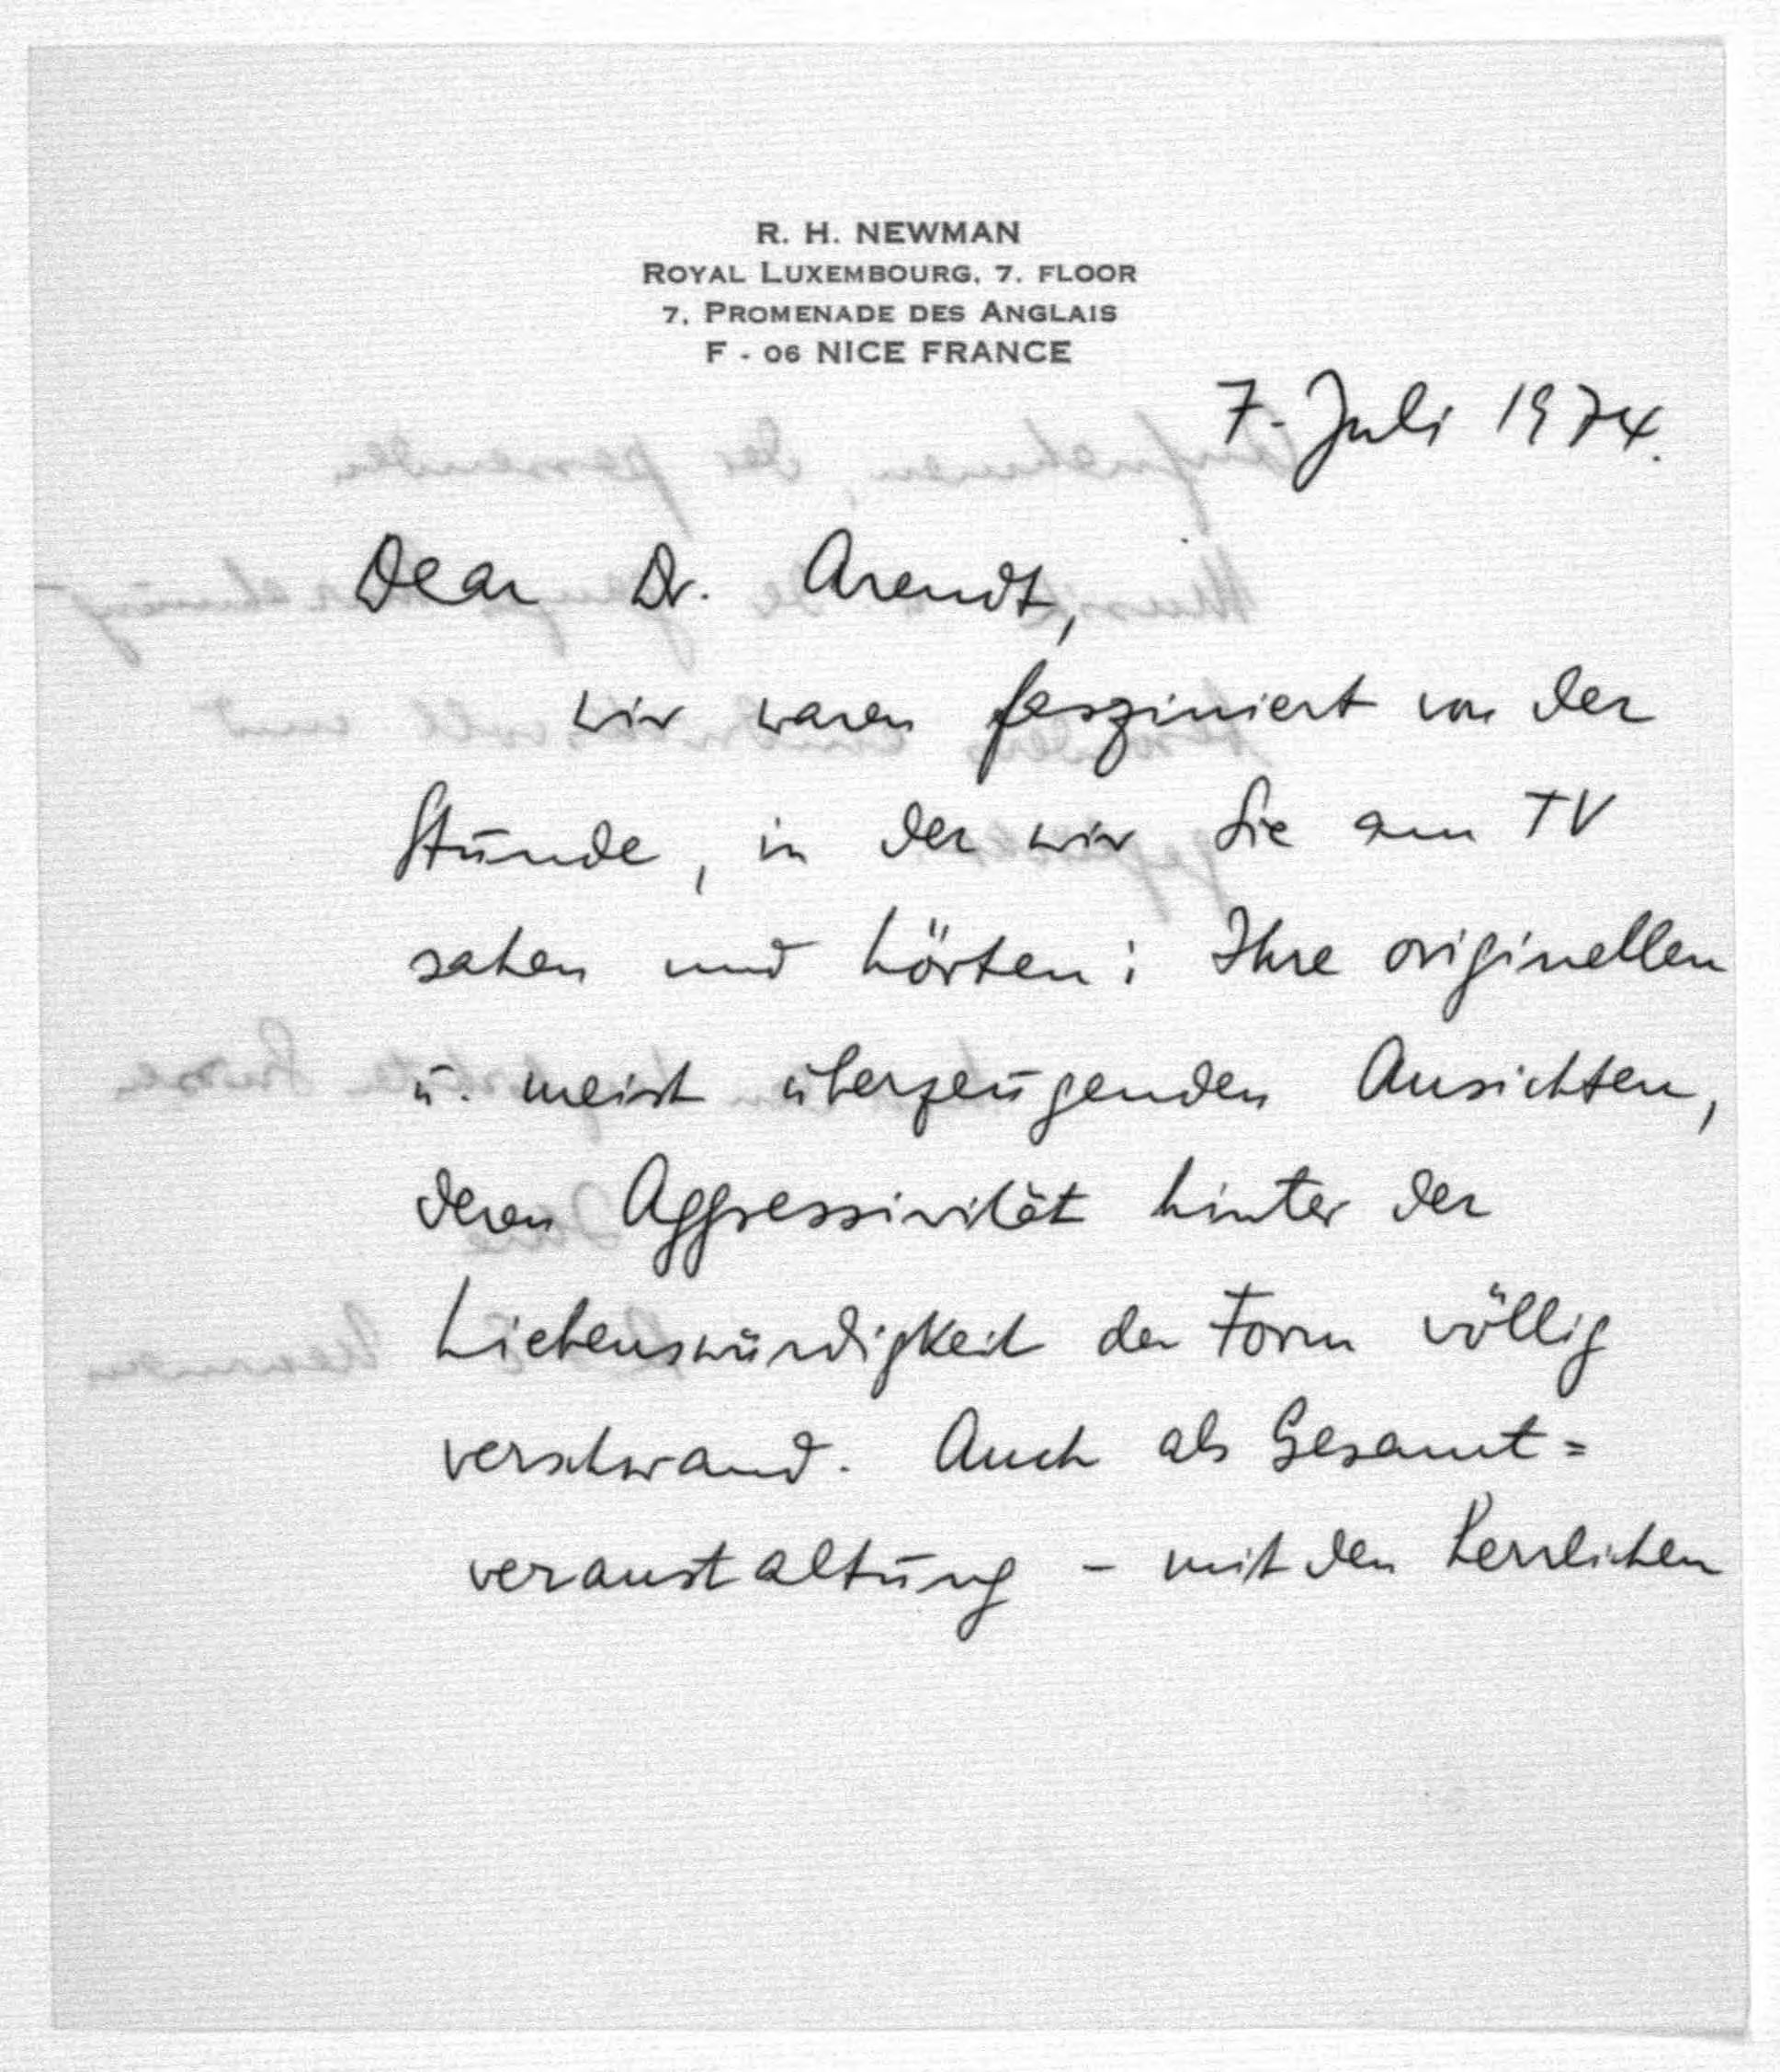 R. H. NEWMAN
ROYAL LUXEMBOURG, 7. FLOOR
7, PROMENADE DES ANGLAIS
F - 06 NICE FRANCE
7. Juli 1974.
Dear Dr. Arendt,
wir waren fasziniert von der
Stunde, in der wir Sie am TV
sahen und hörten: Ihre originellen
u. meist überzeugenden Ansichten,
deren Aggressivität hinter der
Liebenswürdigkeit der Form völlig
verschwand. Auch als Gesamt=
veranstaltung - mit den herrlichen